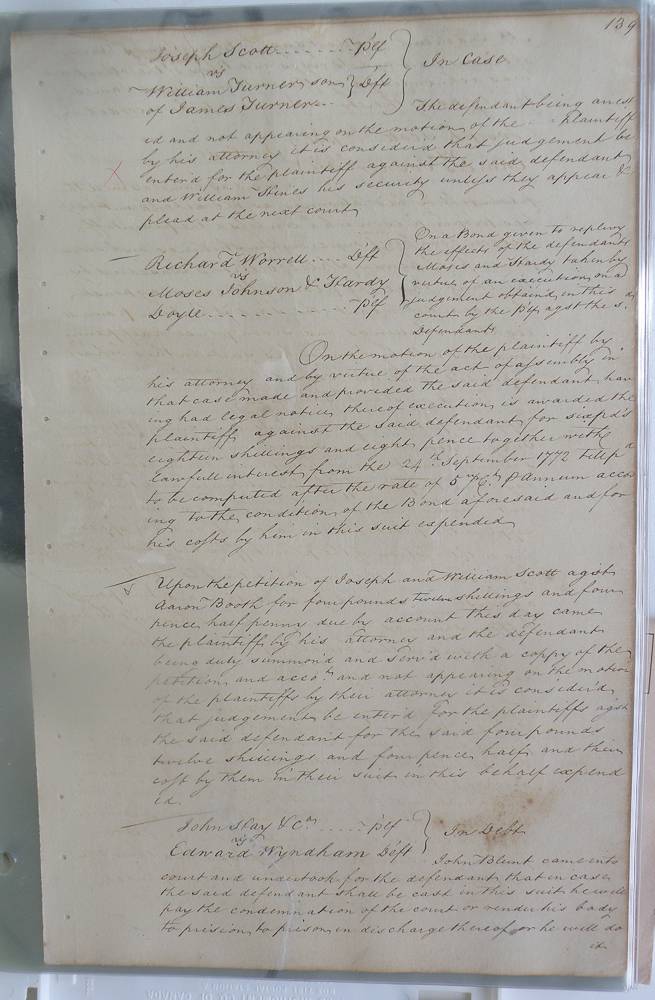 139
Joseph Scott ....... Plf } In Case
vs
William Turner son } Dft
of James Turner ..
The defendant being arrest
ed and not appearing on the motion of the Plaintiff
by his attorney it is considerd that judgement be
enter'd for the plaintiff against the said defendant
and William Hines his security unless they appear &
plead at the next court
Richard Worrell .... Dft
vs
Moses Johnson & Hardy
Doyle .............. Plf
On a Bond given to replevy
the effects of the defendants
Moses and Hardy taken by
virtue of an execution on a
judgement obtaind in this
court by the Plf agst the sd.
Defendants
On the motion of the plaintiff by
his attorney and by virtue of the act of assembly in
that case made and provided the said defendant hav
ing had legal notice thereof execution is awarded the
plaintiff against the said defendant for
eighteen shillings and eight pence together with
lawfull interest from the 24th September 1772 till pd
to be computed after the rate of 5 P Ct. P Annum accord
ing to the condition of the Bond aforesaid and for
his costs by him in this suit expended
Upon the petition of Joseph and William Scott agst
Aaron Booth for four pounds twelve shillings and four
pence half penny due by account this day came
the plaintiff by his attorney and the defendant
being duly summon'd and serv'd with a coppy of the
petition and acco.t and not appearing on the motion
of the plaintiffs by their attorney it is consider'd
that judgement be enter'd for the plaintiffs agst
the said defendant for the said four pounds
twelve shillings and four pence half and their
cost by them in their suit in this behalf expend
ed.
John Hay & Co. ..... Plf } In Debt
vs
Edward Wyndham Deft
John Blunt came into
court and undertook for the defendant that in case
the said defendant shall be cast in this suit he will
pay the condemnation of the court or render his body
to prision to prison in discharge thereof or he will do
it